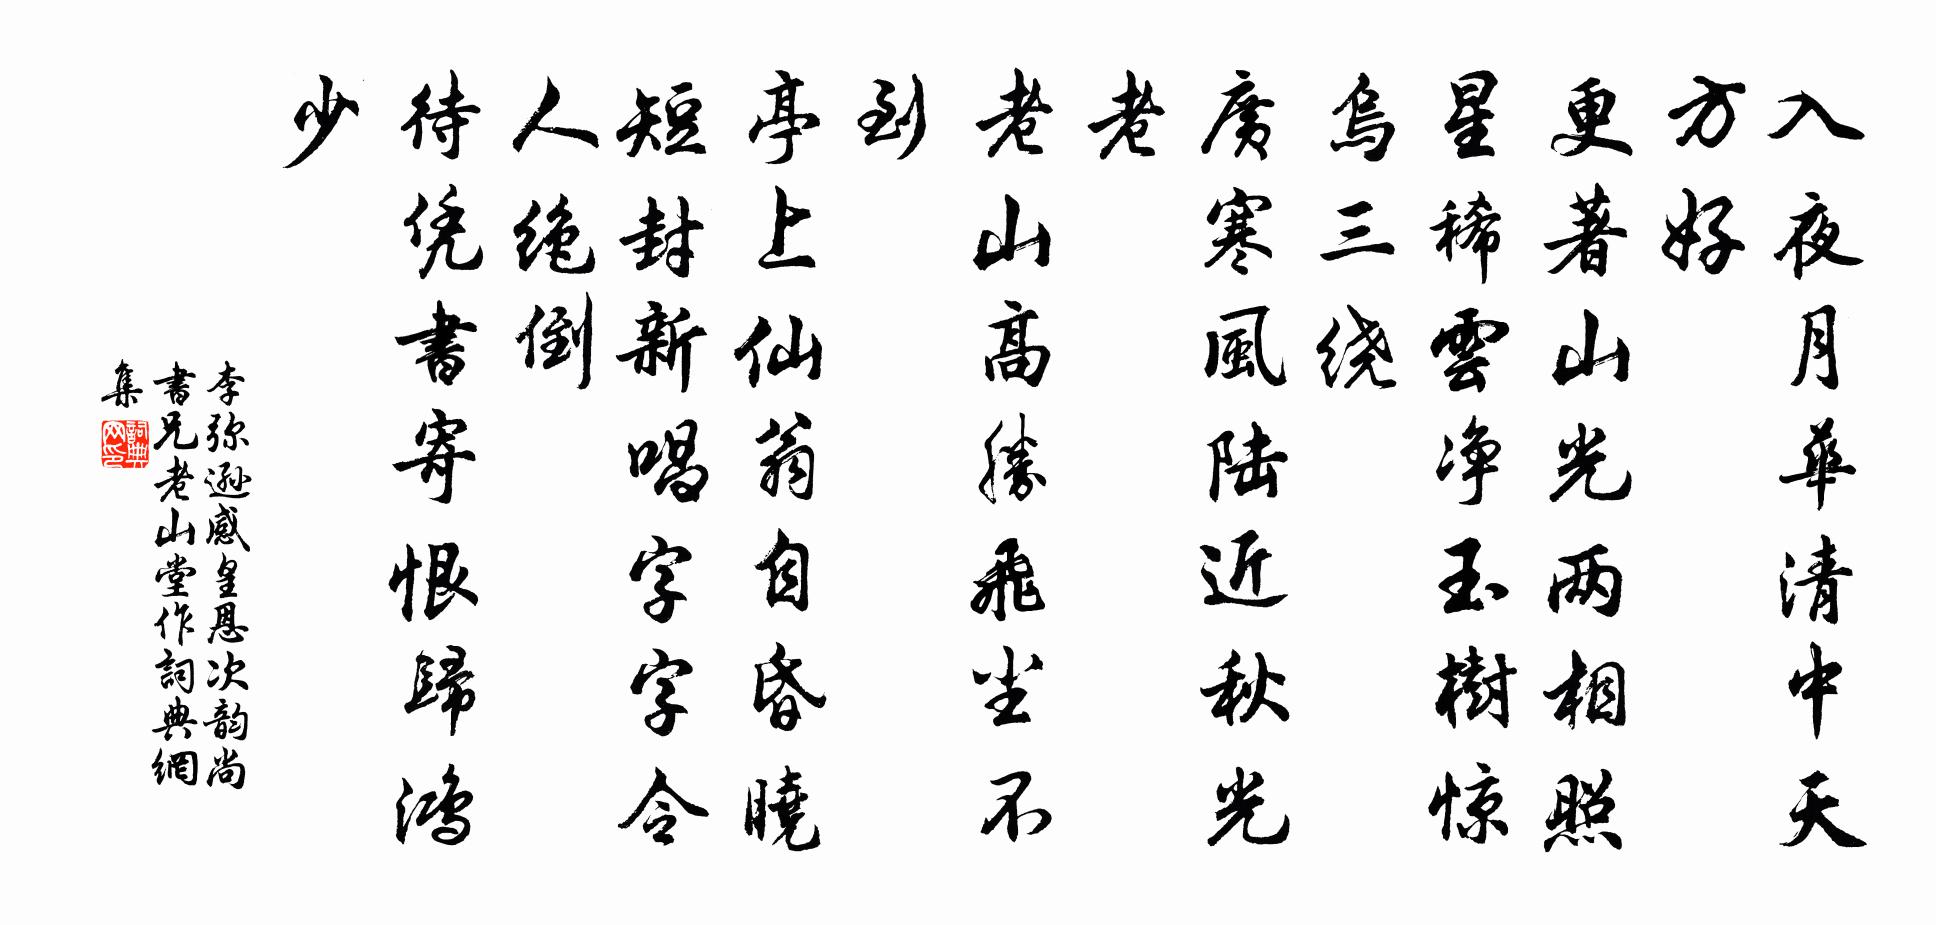 入夜月華清中天
方好
更著山光两相照
星稀雲净玉樹惊
烏三绕
廣寒風陆近秋光
老
老山高勝飛尘不
到
亭上仙翁自昏曉
短封新唱字字令
人绝倒
待凭書寄恨歸鸿
少
李弥遜感皇恩次韵尚
書兄老山堂作詞典網
集
詞典
网印